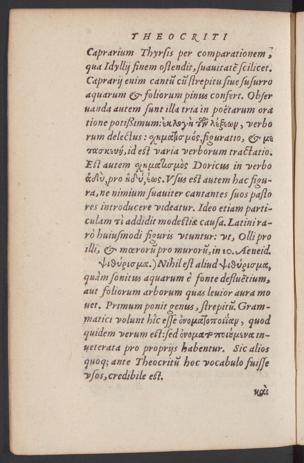 THEOCRITI
Caprarium Thyrsis per comparationem,
qua Idyllij finem ostendit, suauitatē scilicet.
Caprarij enim cantū cū strepitu siue susurro
aquarum & foliorum pinus confert. Obser
uanda autem sunt illa tria in poëtarum ora
tione potißimum: ἐκλογὴ τῶν λέξεων, verbo
rum delectus: σχηματισμὸς, figuratio, & με
τασκευὴ, id est varia verborum tractatio.
Est autem σχηματισμὸς Doricus in verbo
ἁδὺ, pro ἡδὺ, έως. Vsus est autem hac figu-
ra, ne nimium suauiter cantantes suos pasto
res introducere videatur. Ideo etiam parti-
culam τι addidit modestiæ causa. Latini ra-
rò huiusmodi figuris vtuntur: vt, Olli pro
illi, & mœrorū pro murorū, in 10. Aeneid.
ψιθύρισμα.) Nihil est aliud ψιθύρισμα,
quàm sonitus aquarum è fonte defluētium,
aut foliorum arborum quas leuior aura mo
uet. Primum ponit genus, strepitū. Gram-
matici volunt hîc esse ὀνοματοποιΐαν, quod
quidem verum est: sed ὀνοματοποιΐᾳ in-
ueterata pro proprijs habentur. Sic alios
quoq; ante Theocritū hoc vocabulo fuisse
vsos, credibile est.
καὶ